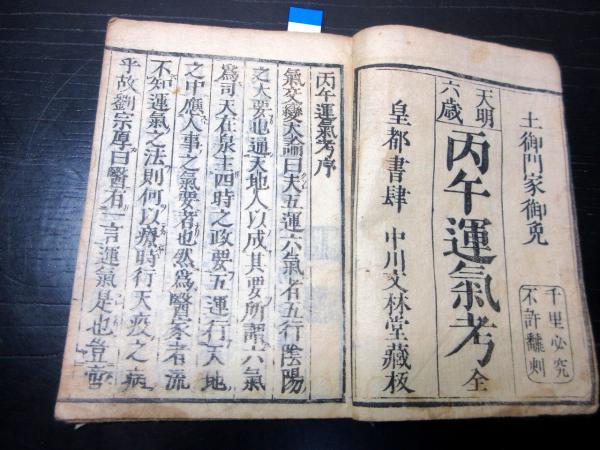 土御門家御免
千里必究
不許翻刻
天明
六歳
丙午運氣考 全
皇都書肆 中川文林堂藏板
丙午運氣考序
氣交變大論曰夫五運六氣者五行陰陽
之大要也通天地人以成其要所謂六氣
爲司天在泉主四時之政要五運行天地
之中應人事之氣要者也然爲醫家者流
不知運氣之法則何以療時行天疫之病
乎故劉宗厚曰醫有一言運氣是也豈